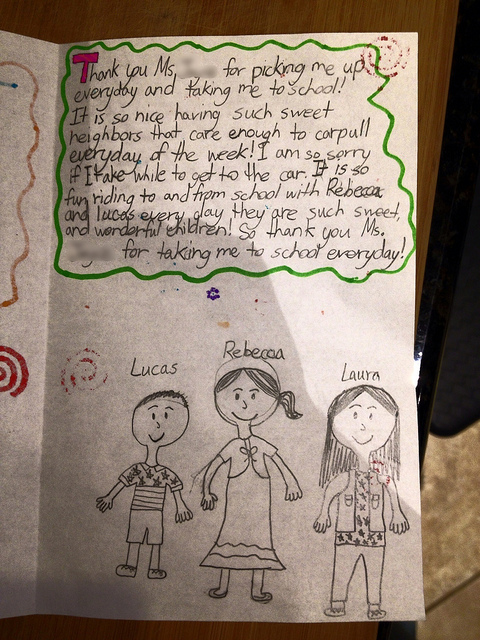 Thank you Ms. for picking me up
everyday and taking me to school!
It is so nice having such sweet
neighbors that care enough to carpull
everyday of the week! I am so sorry
if I take while to get to the car. It is so
fun riding to and from school with Rebecca
and lucas every day they are such sweet,
and wonderful children! So thank you Ms.
for taking me to school everyday!
Lucas
Rebecca
Laura